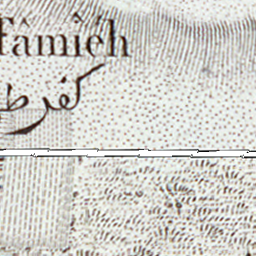 Tâmiéh
كفر ط